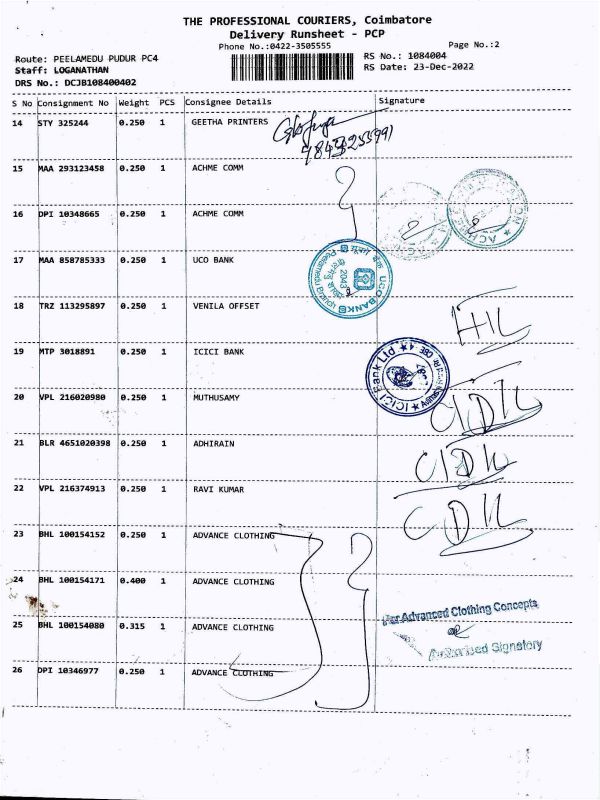 THE PROFESSIONAL COURIERS, Coimbatore
Delivery Runsheet - PCP
Phone No.:0422-3505555
Page No.:2
Route: PEELAMEDU PUDUR PC4
RS No.: 1084004
Staff: LOGANATHAN
RS Date: 23-Dec-2022
DRS No.: DCJB108400402
S No Consignment No Weight PCS Consignee Details Signature
14 STY 325244 0.250 1 GEETHA PRINTERS
15 MAA 293123458 0.250 1 ACHME COMM
16 DPI 10348665 0.250 1 ACHME COMM
17 MAA 858785333 0.250 1 UCO BANK
UCO BANK
Peelamedu Branch
2043
18 TRZ 113295897 0.250 1 VENILA OFFSET
19 MTP 3018891 0.250 1 ICICI BANK
ICICI Bank Ltd
20 VPL 216020980 0.250 1 MUTHUSAMY
21 BLR 4651020398 0.250 1 ADHIRAIN
22 VPL 216374913 0.250 1 RAVI KUMAR
23 BHL 100154152 0.250 1 ADVANCE CLOTHING
24 BHL 100154171 0.400 1 ADVANCE CLOTHING
For Advanced Clothing Concepts
25 BHL 100154080 0.315 1 ADVANCE CLOTHING
Authorised Signatory
26 DPI 10346977 0.250 1 ADVANCE CLOTHING